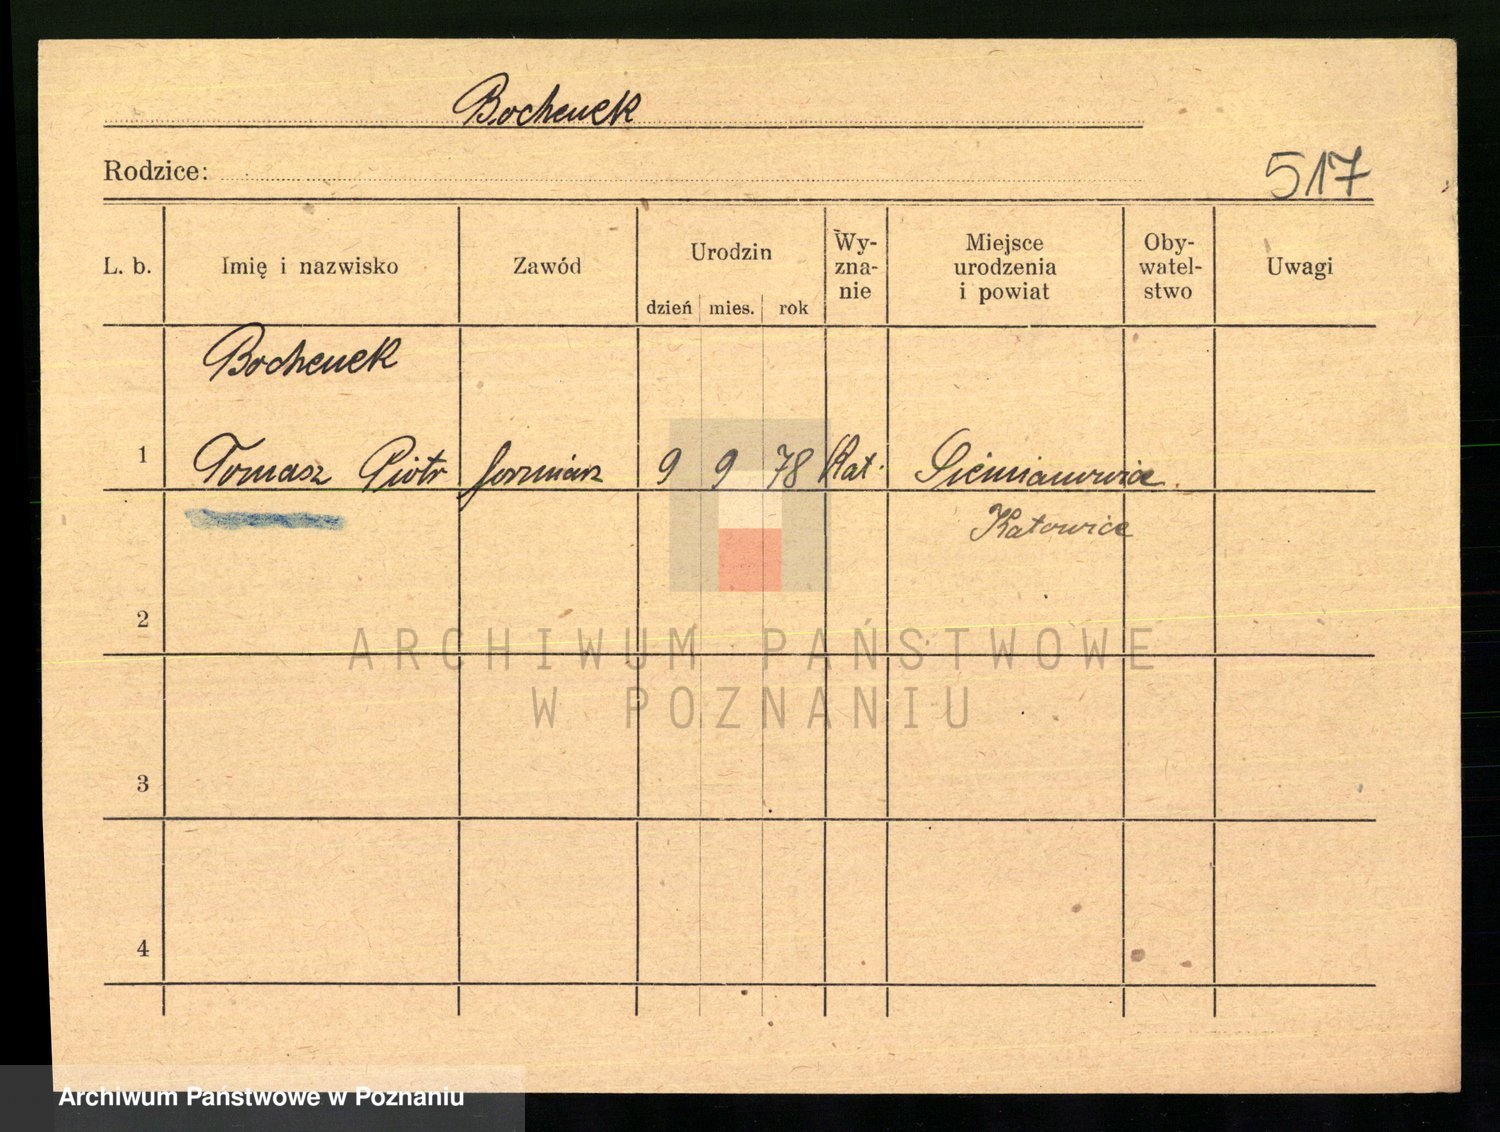 Bochenek
Rodzice:
517
L. b. Imię i nazwisko Zawód Urodzin dzień mies. rok Wy- zna- nie Miejsce urodzenia i powiat Oby- watel- stwo Uwagi
Bochenek
1 Tomasz Piotr 9 9 78 Kat. Siemianowice
Katowice
2
3
4
ARCHIWUM PAŃSTWOWE
W POZNANIU
Archiwum Państwowe w Poznaniu